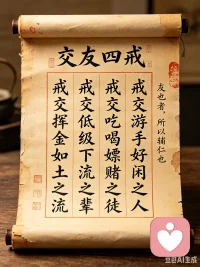 交友四戒
友也者，所以辅仁也
戒交游手好闲之人
戒交吃喝嫖赌之徒
戒交低级下流之辈
戒交挥金如土之流
豆包AI生成